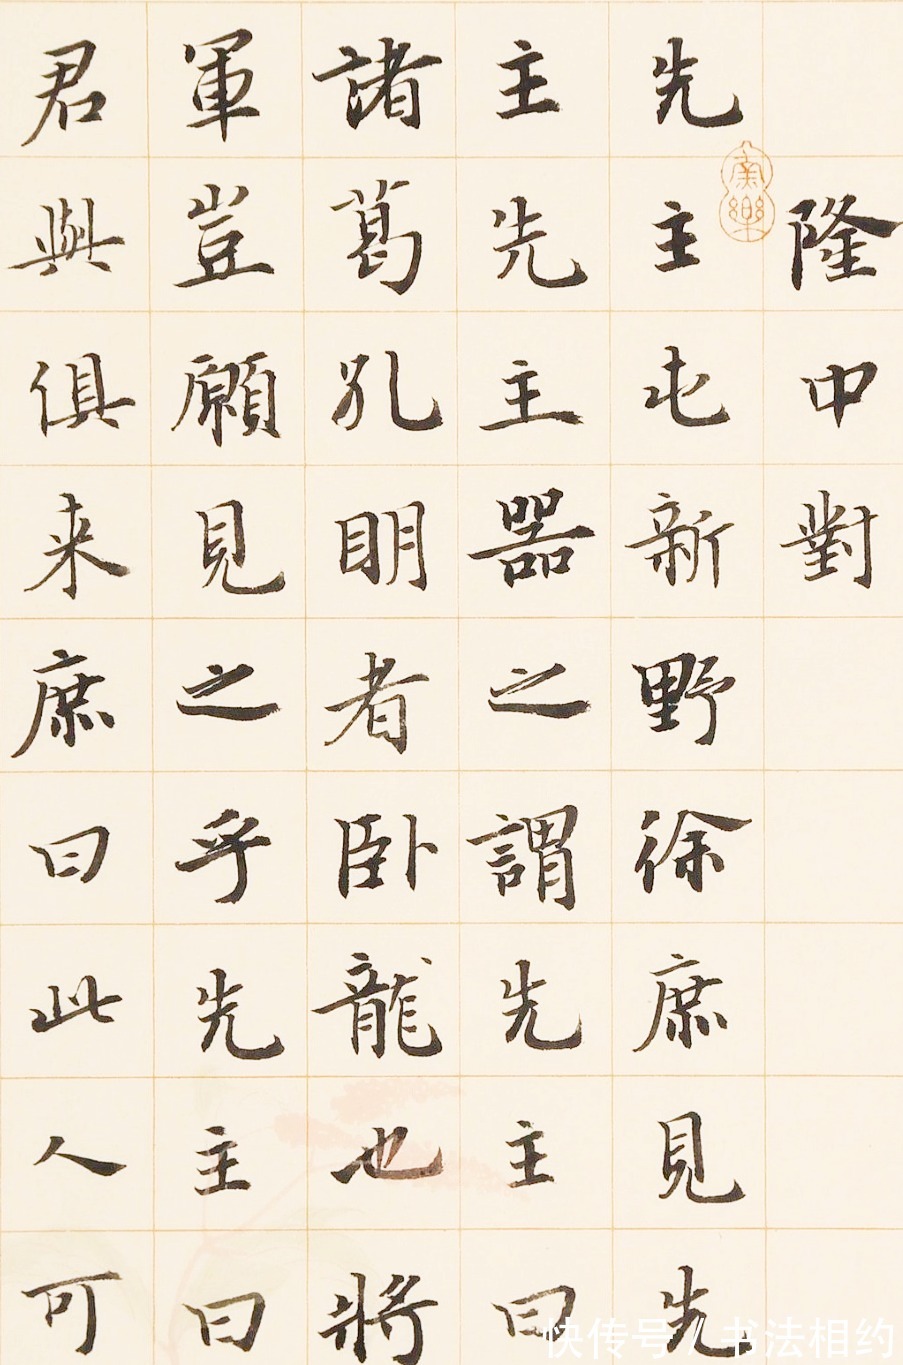 隆中對
先主屯新野徐庶見先
主先主器之謂先主曰
諸葛孔明者臥龍也將
軍豈願見之乎先主曰
君與俱来庶曰此人可
快传号/书法相约